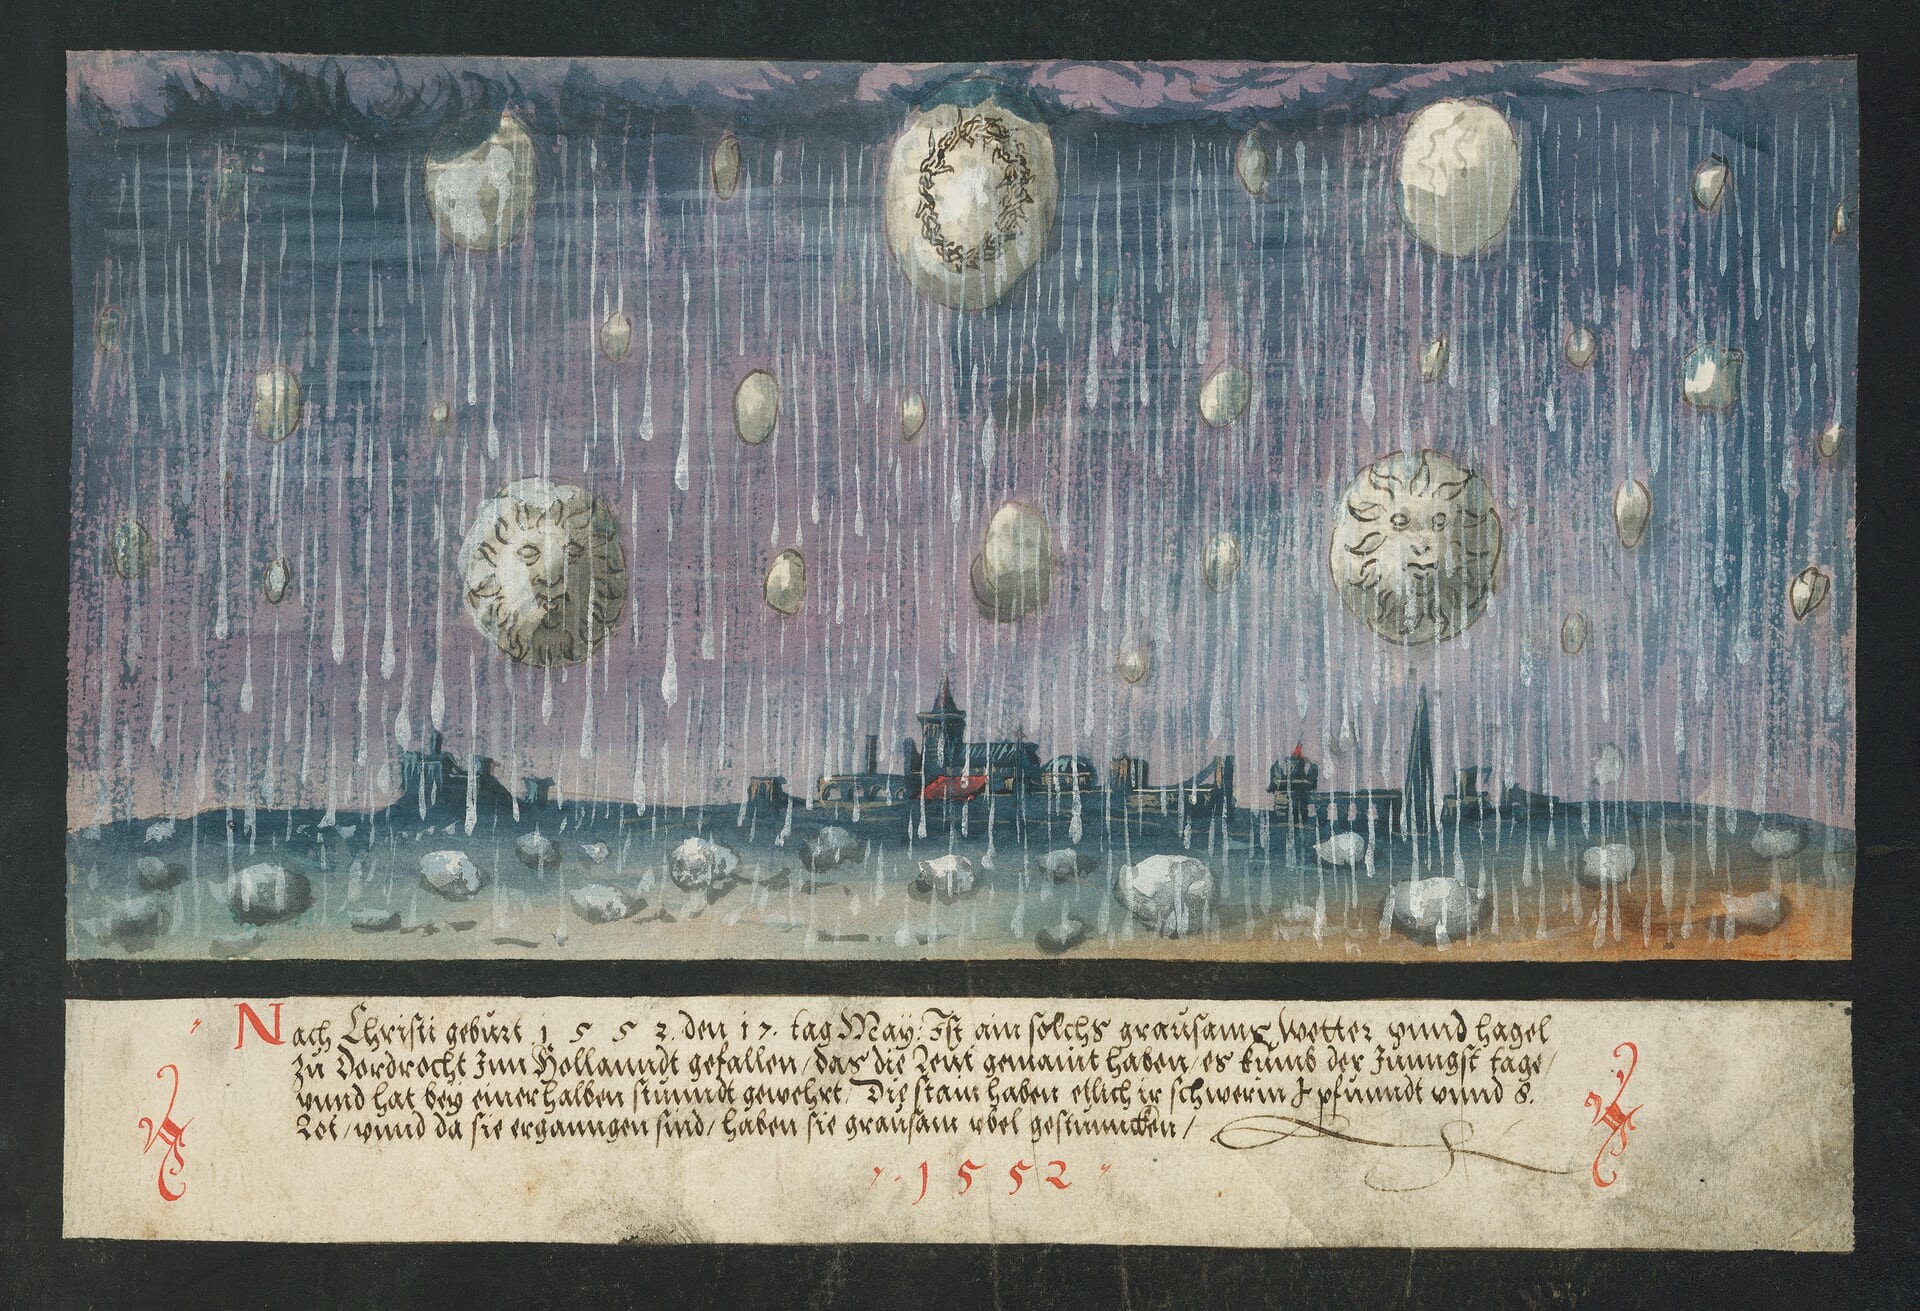 Nach Christi geburt 1552. den 17. tag May. Ist ain solchs graüsams wetter vnnd hagel
zü Dordrecht Inn Hollanndt gefallen / das die Leüt gemaint haben / es kumb der Jünngst tage /
vnnd hat bey einer halben stünndt gewehrt / Die stain haben etlich ir schwerin pfünndt vnnd 8.
Lot / vnnd da sie erganngen sind / haben sie graüsam vbel gestünncken /
1552